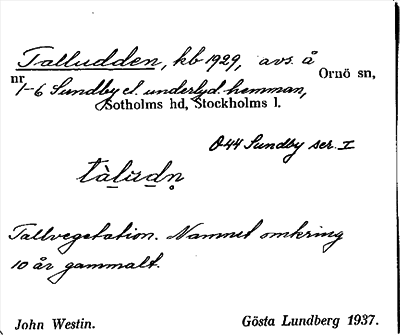 Talludden, kb 1929, avs. å Ornö sn,
nr 1-6 Sundby el. underlyd. hemman,
Sotholms hd, Stockholms l.
O44 Sundby ser. I
tàlùdn̥
Tallvegetation. Namnet omkring
10 år gammalt.
John Westin. Gösta Lundberg 1937.